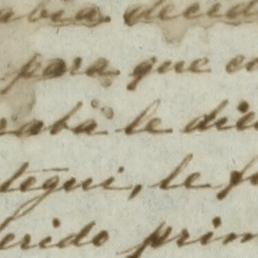 abia decid
para que e
raba le die
tegui, le f
erido prim